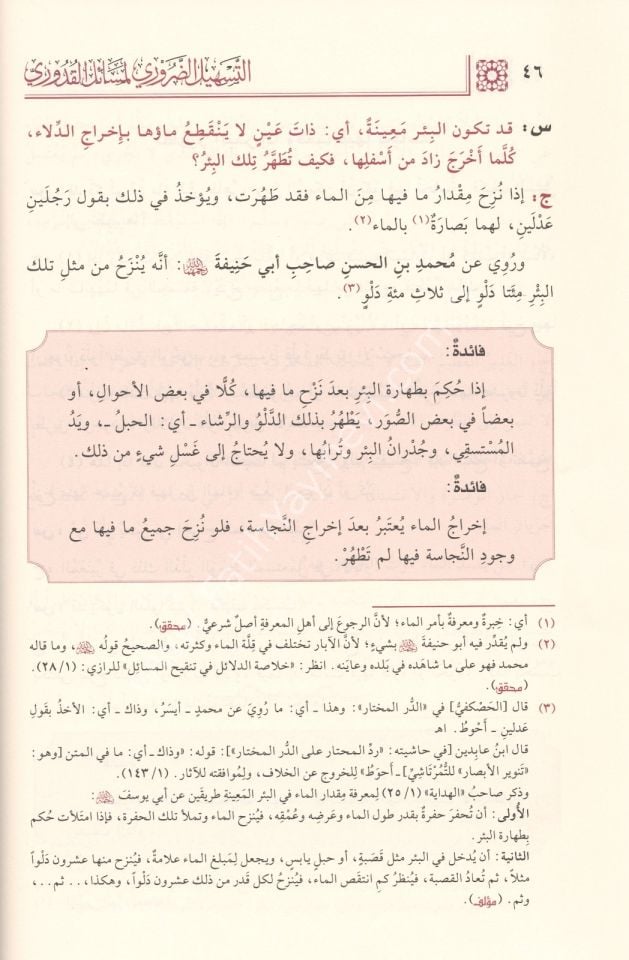 ٤٦
التسهيل الضروري لمسائل القدوري
س: قد تكون البئر مَعِينَةٌ، أي: ذاتَ عَيْنٍ لا يَنْقَطِعُ ماؤها بإخراجِ الدِّلاء،
كُلَّما أَخْرَجَ زادَ من أَسْفلِها، فكيف تُطَهَّرُ تِلكَ البِئرُ؟
ج: إذا نُزِحَ مِقْدارُ ما فيها مِنَ الماء فقد طَهُرَت، ويُؤخذُ في ذلك بقول رَجُلَينِ
عَدْلَينِ، لهما بَصارَةٌ(١) بالماء(٢).
ورُوِي عن مُحمدِ بنِ الحسنِ صاحِبِ أبي حَنِيفةَ رحمهما الله: أنَّه يُنْزَحُ من مثلِ تلك
البِئْرِ مِئَتا دَلْوٍ إلى ثلاثِ مئةِ دَلْوٍ(٣).
فائدةٌ:
إذا حُكِمَ بطهارة البِئرِ بعدَ نَزْحِ ما فيها، كُلًّا في بعض الأحوالِ، أو
بعضاً في بعض الصُّوَر، يَطْهُر بذلك الدَّلْوُ والرِّشاء ـ أي: الحبلُ ـ، ويَدُ
المُسْتسقِي، وجُدْرانُ البِئر وتُرابُها، ولا يُحتاجُ إلى غَسْلِ شيءٍ من ذلك.
فائدةٌ:
إخراجُ الماء يُعتَبَرُ بعدَ إخراجِ النَّجاسة، فلو نُزِحَ جميعُ ما فيها مع
وجودِ النَّجاسة فيها لم تَطْهُرْ.
(١) أي: خِبرةٌ ومعرفةٌ بأمر الماء؛ لأنَّ الرجوعَ إلى أهلِ المعرفةِ أصلٌ شرعيٌّ. (محقق).
(٢) ولم يُقدِّر فيه أبو حنيفةَ بشيءٍ؛ لأنَّ الآبار تختلف في قِلَّة الماء وكثرته، والصحيحُ قولُه، وما قاله
محمد فهو على ما شاهَده في بَلده وعايَنه. انظر: «خلاصة الدلائل في تنقيح المسائل» للرازي: (٢٨/١).
(محقق).
(٣) قال [الحَصْكفيُّ] في «الدُّر المختار»: وهذا ـ أي: ما رُوِيَ عن محمدٍ ـ أيسَرُ، وذاك ـ أي: الأخذُ بقَولِ
عَدلينِ ـ أَحْوطُ. اهـ
قال ابنُ عابِدين [في حاشيته: «ردِّ المحتار على الدُّر المختار»]: قوله: «وذاك ـ أي: ما في المتن [وهو:
«تنوير الأبصار» للتُّمُرْتاشيِّ] ـ أحوَطُ» للخروج عن الخلاف، ولِمُوافقته للآثار. (١٤٣/١).
وذكر صاحبُ «الهداية» (٢٥/١) لِمعرفة مِقدار الماء في البئر المَعِينةِ طريقَين عن أبي يوسفَ:
الأُولى: أن تُحفَرَ حفرةٌ بقدر طول الماء وعَرضِه وعُمْقِه، فيُنزح الماء وتملأ تلك الحفرة، فإذا امتَلأت حُكم
بِطهارة البئر.
الثانية: أن يُدخل في البئر مثل قَصَبةٍ، أو حبلٍ يابسٍ، ويجعل لِمَبلغ الماء علامةٌ، فيُنزح منها عشرون دَلْواً
مثلاً، ثم تُعادُ القصبة، فيُنظرُ كم انتَقص الماء، فيُنزحُ لكل قَدرٍ من ذلك عشرون دَلْواً، وهكذا، .. ثم ..،
وثم. (مؤلف).